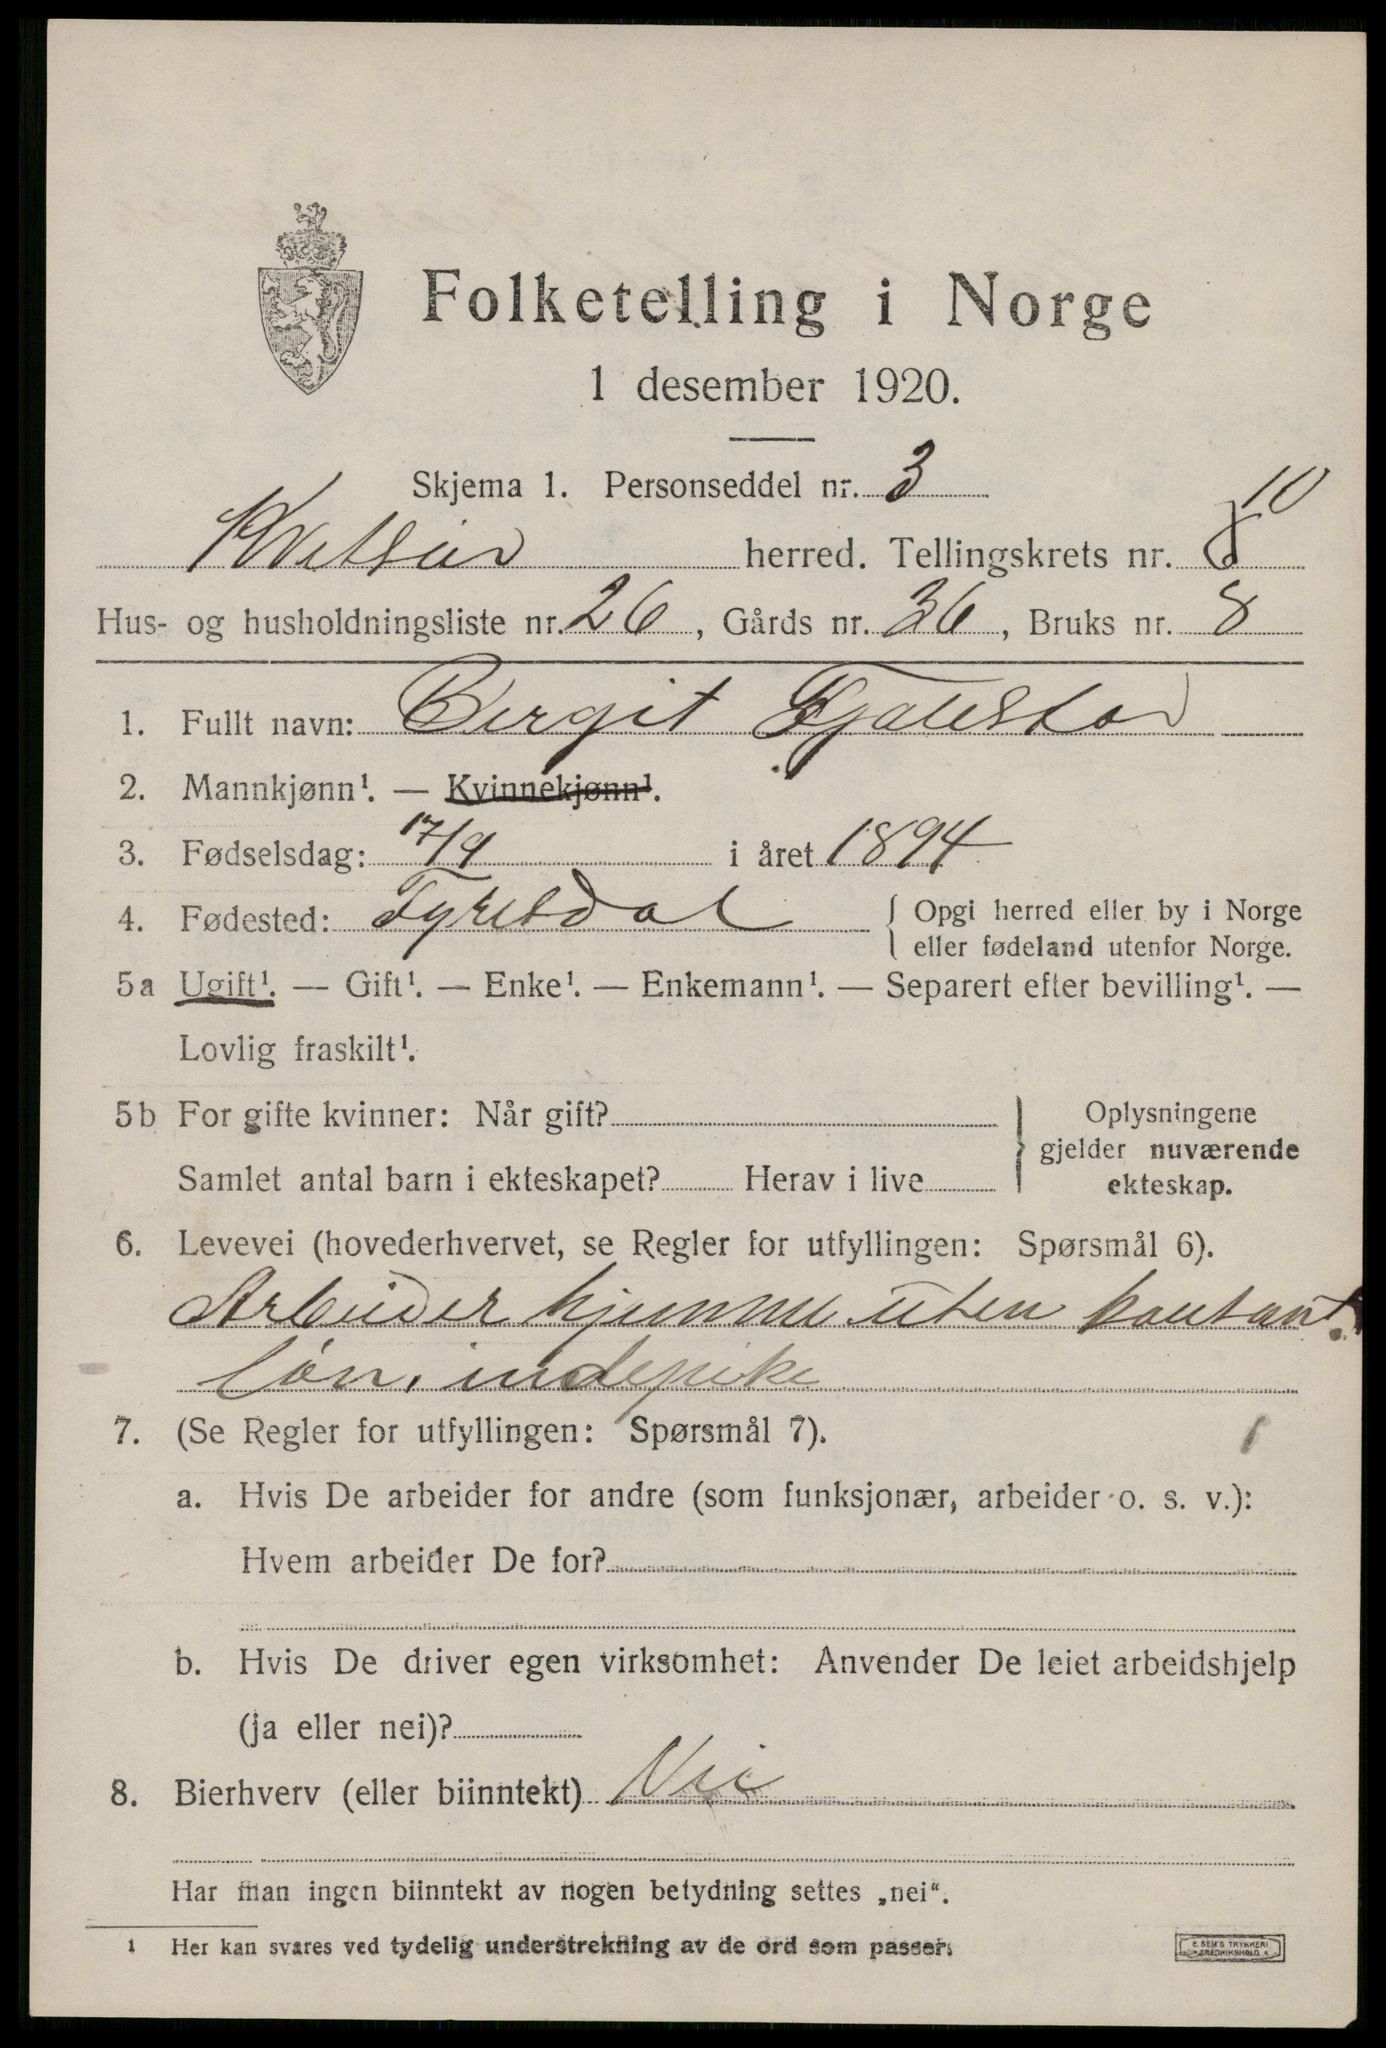 Folketelling i Norge
1 desember 1920.
Skjema 1. Personseddel nr. 3
10
Kvitseid herred. Tellingskrets nr. 8
Hus- og husholdningsliste nr. 26, Gårds nr. 36, Bruks nr. 8
1. Fullt navn: Birgit Fjalestad
2. Mannkjønn¹. — Kvinnekjønn¹.
3. Fødselsdag: 17/9 i året 1894
4. Fødested: Fyresdal { Opgi herred eller by i Norge
eller fødeland utenfor Norge.
5a Ugift¹. — Gift¹. — Enke¹. — Enkemann¹. — Separert efter bevilling¹. —
Lovlig fraskilt¹.
5b For gifte kvinner: Når gift? } Oplysningene
gjelder nuværende
Samlet antal barn i ekteskapet? Herav i live ekteskap.
6. Levevei (hovederhvervet, se Regler for utfyllingen: Spørsmål 6).
Arbeider hjemme uten kontant
løn, indepike
7. (Se Regler for utfyllingen: Spørsmål 7).
a. Hvis De arbeider for andre (som funksjonær, arbeider o. s. v.):
Hvem arbeider De for?
b. Hvis De driver egen virksomhet: Anvender De leiet arbeidshjelp
(ja eller nei)?
8. Bierhverv (eller biinntekt) Nei
Har man ingen biinntekt av nogen betydning settes „nei“.
1 Her kan svares ved tydelig understrekning av de ord som passer.
E. SEM'S TRYKKERI
FREDRIKSHALD